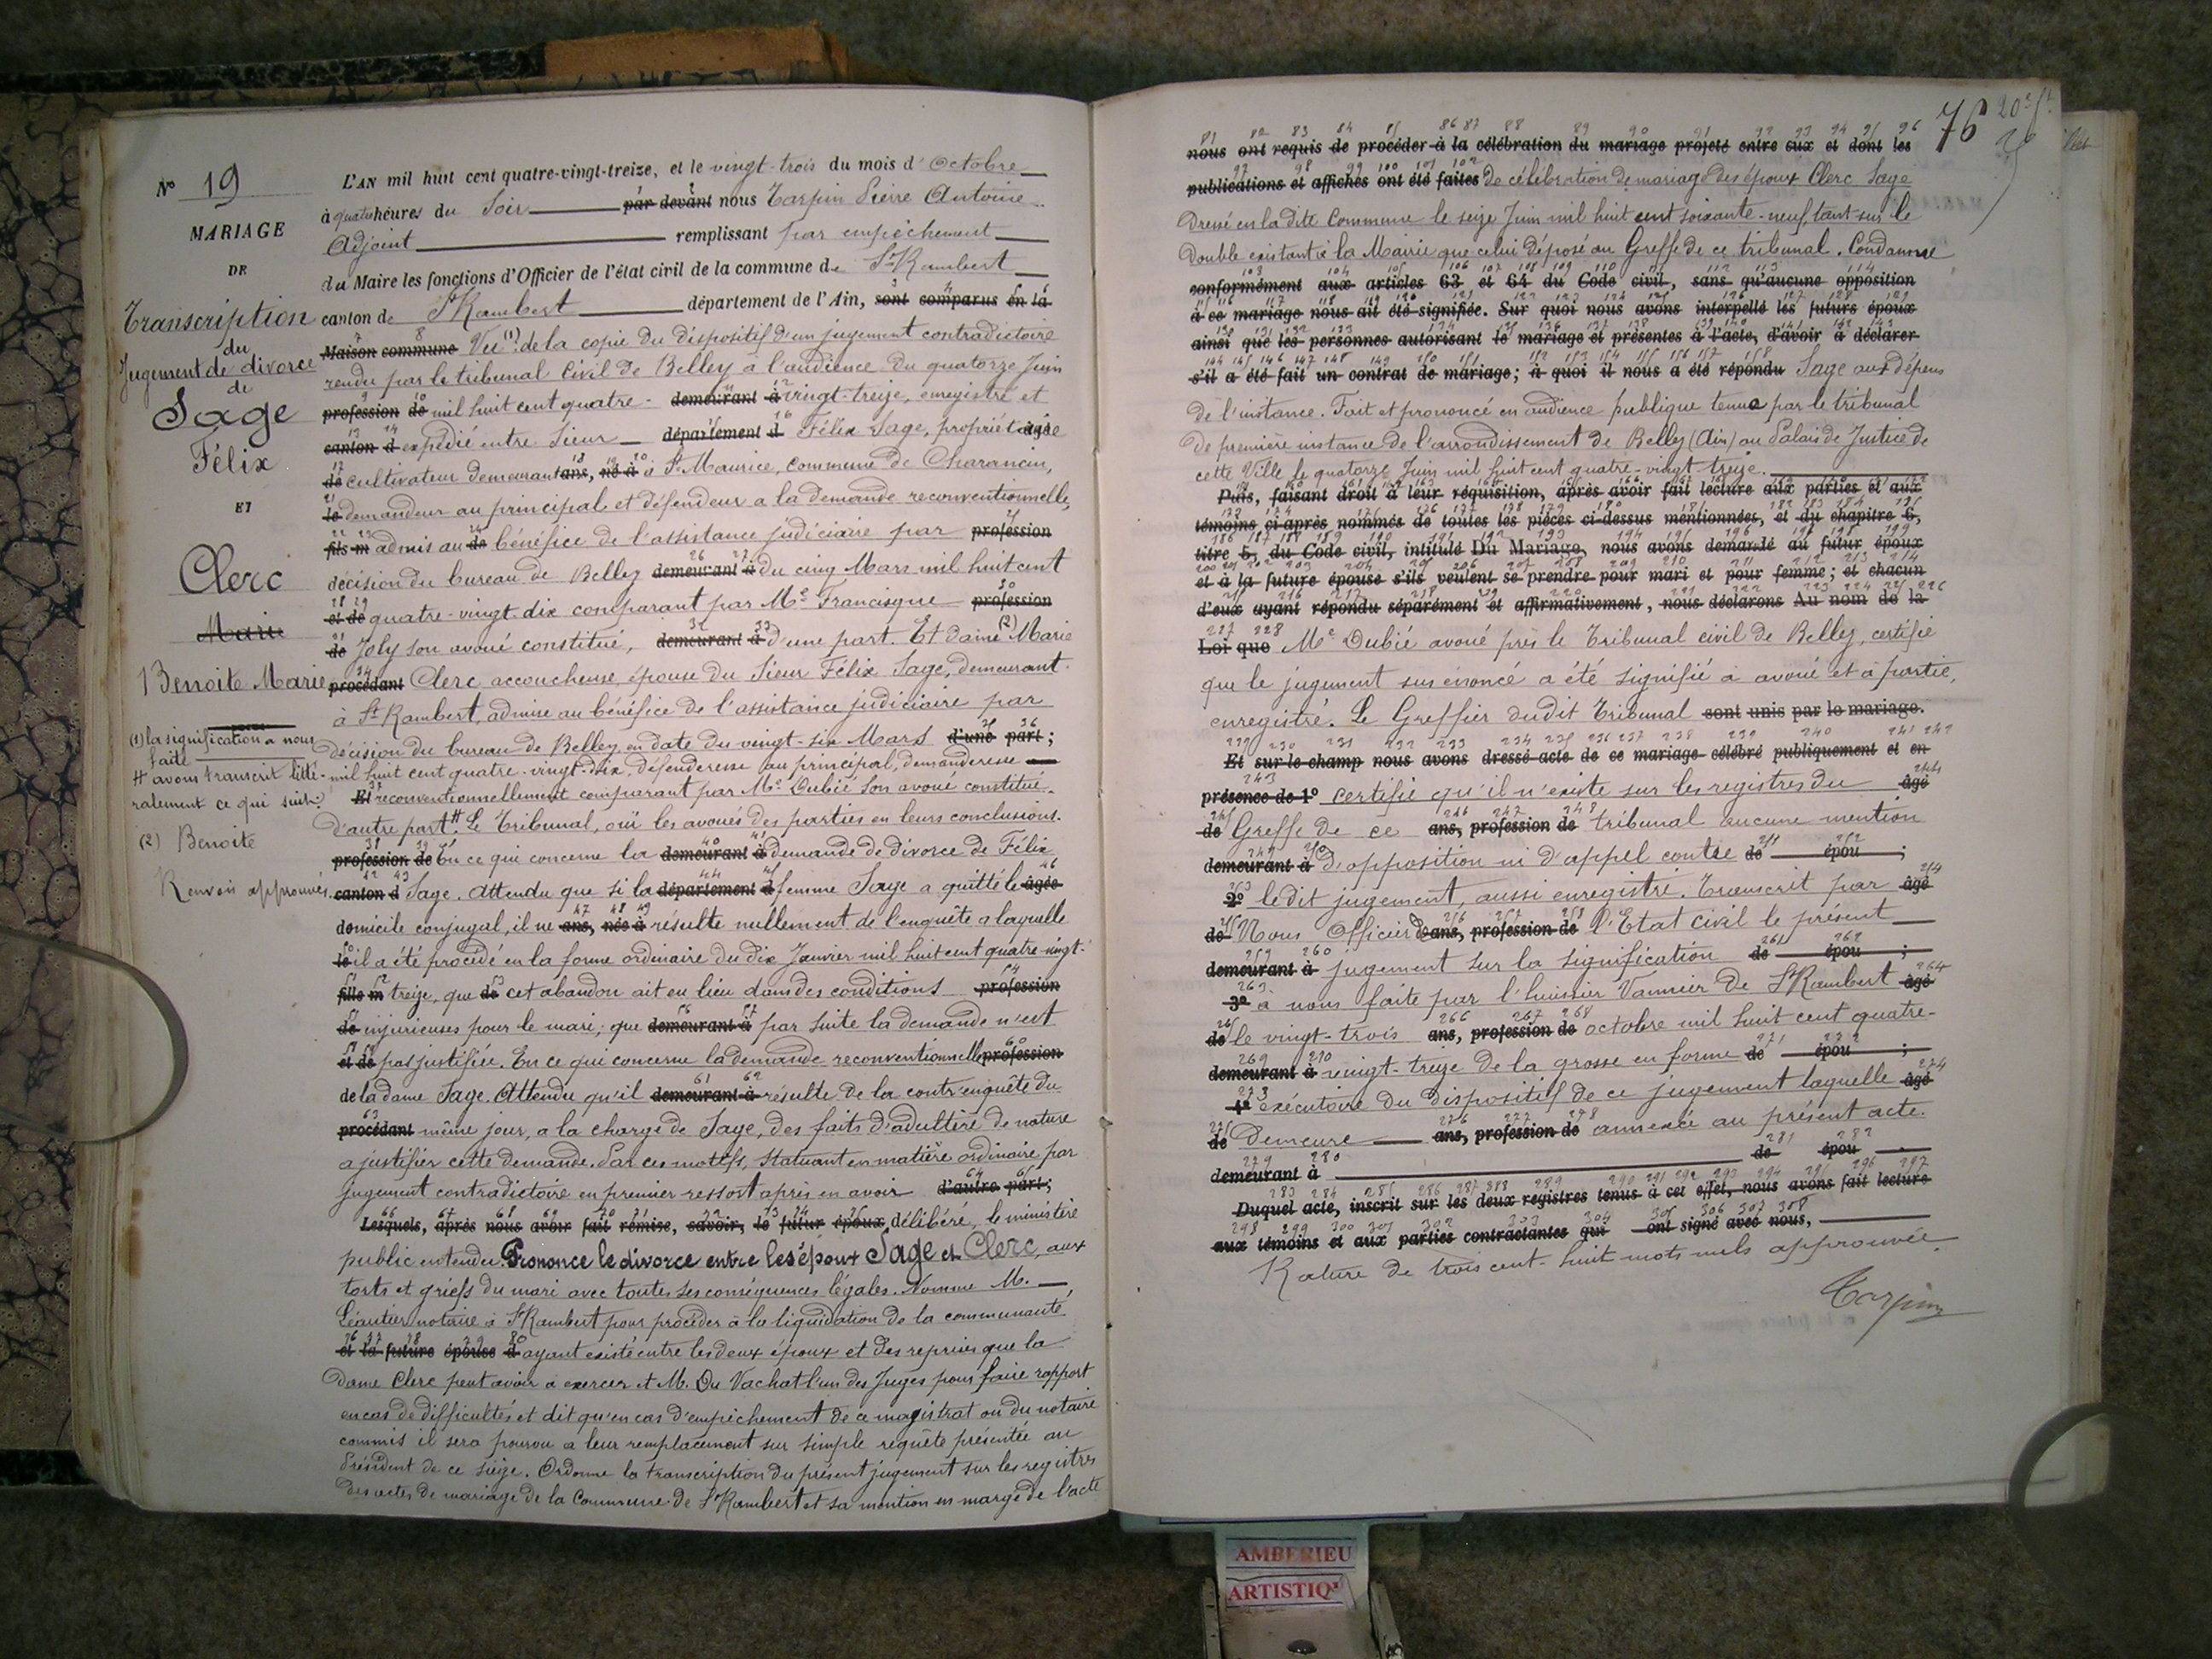 N° 19
MARIAGE
DE
Transcription
du
Jugement de divorce
de
Sage
Félix
ET
Clerc
Marie
Benoite Marie
(1) la signification a nous
faite
# avons transcrit litté-
ralement ce qui suit:
(2) Benoite
Renvois approuvés.
L'AN mil huit cent quatre-vingt-treize, et le vingt-trois du mois d'Octobre
à quatre heures du Soir par devant nous Tarpin Pierre Antoine
Adjoint remplissant par empêchement
du Maire les fonctions d'Officier de l'état civil de la commune de St Rambert
canton de St Rambert département de l'Ain, sont comparus en la
Maison commune Vu (1) de la copie du dispositif d'un jugement contradictoire
rendu par le tribunal Civil de Belley à l'audience du quatorze Juin
profession de mil huit cent quatre- demeurant à vingt-treize, enregistré et
canton d expédié entre Sieur département d Félix Sage, propriétaire
de cultivateur demeurant ans, né à à St Maurice, commune de Charancin,
le demandeur au principal et défendeur a la demande reconventionnelle,
fils m admis au de bénéfice de l'assistance judiciaire par profession
décision du bureau de Belley demeurant à du cinq Mars mil huit cent
et de quatre-vingt dix comparant par Me Francisque profession
de Joly son avoué constitué, demeurant à d'une part. Et dame (2) Marie
procédant Clerc accoucheuse, épouse du Sieur Félix Sage, demeurant
à St Rambert, admise au bénéfice de l'assistance judiciaire par
décision du bureau de Belley en date du vingt-six Mars d'une part;
mil huit cent quatre-vingt-dix, défenderesse au principal, demanderesse
Et reconventionnellement comparant par Me Dubié son avoué constitué.
d'autre part # Le Tribunal, ouï les avoués des parties en leurs conclusions.
profession de En ce qui concerne la demeurant à demande de divorce de Félix
canton d Sage. Attendu que si la département d femme Sage a quitté le âgée
domicile conjugal, il ne ans, née à résulte nullement de l'enquête a laquelle
le il a été procédé en la forme ordinaire du dix Janvier mil huit cent quatre-vingt-
fille m treize, que de cet abandon ait eu lieu dans des conditions profession
de injurieuses pour le mari; que demeurant à par suite la demande n'est
et de pas justifiée. En ce qui concerne la demande reconventionnelle profession
de la dame Sage. Attendu qu'il demeurant à résulte de la contr'enquête du
procédant même jour, a la charge de Sage, des faits d'adultère de nature
a justifier cette demande. Par ces motifs, Statuant en matière ordinaire par
jugement contradictoire en premier ressort après en avoir d'autre part;
Lesquels, après nous avoir fait remise, savoir, le futur époux, délibéré, le ministère
public entendu. Prononce le divorce entre les époux Sage et Clerc, aux
torts et griefs du mari avec toutes ses conséquences légales. Nomme M.
Léautier notaire à St Rambert pour procéder à la liquidation de la communauté
et la future épouse d ayant existé entre les deux époux et des reprises que la
dame Clerc peut avoir a exercer et M. Du Vachat l'un des Juges pour faire rapport
en cas de difficultés et dit qu'en cas d'empêchement de ce magistrat ou du notaire
commis il sera pourvu a leur remplacement sur simple requête présentée au
Président de ce Siège. Ordonne la transcription du présent jugement sur les registres
des actes de mariage de la Commune de St Rambert et sa mention en marge de l'acte
76
nous ont requis de procéder à la célébration du mariage projeté entre eux et dont les
publications et affiches ont été faites de célébration de mariage des époux Clerc Sage
dressé en la dite Commune le seize Juin mil huit cent soixante-neuf, tant sur le
double existant à la Mairie que celui déposé au Greffe de ce tribunal. Condamne
conformément aux articles 63 et 64 du Code civil, sans qu'aucune opposition
à ce mariage nous ait été signifiée. Sur quoi nous avons interpellé les futurs époux
ainsi que les personnes autorisant le mariage et présentes à l'acte, d'avoir à déclarer
s'il a été fait un contrat de mariage; à quoi il nous a été répondu Sage aux dépens
de l'instance. Fait et prononcé en audience publique tenue par le tribunal
de première instance de l'arrondissement de Belley (Ain) au Palais de Justice de
cette Ville le quatorze Juin mil huit cent quatre-vingt-treize.
Puis, faisant droit à leur réquisition, après avoir fait lecture aux parties et aux
témoins ci-après nommés de toutes les pièces ci-dessus mentionnées, et du chapitre 6,
titre 5, du Code civil, intitulé Du Mariage, nous avons demandé au futur époux
et à la future épouse s'ils veulent se prendre pour mari et pour femme; et chacun
d'eux ayant répondu séparément et affirmativement, nous déclarons Au nom de la
Loi que Me Dubié avoué près le Tribunal civil de Belley, certifie
que le jugement sus énoncé a été signifié a avoué et a partie,
enregistré. Le Greffier dudit Tribunal sont unis par le mariage.
Et sur-le-champ nous avons dressé acte de ce mariage célébré publiquement et en
présence de 1° certifie qu'il n'existe sur les registres du âgé
de Greffe de ce ans, profession de tribunal aucune mention
demeurant à d'opposition ni d'appel contre de épou ;
2° le dit jugement, aussi enregistré. Transcrit par âgé
de Nous Officier de ans, profession de l'Etat civil le présent
demeurant à jugement sur la signification de épou ;
3° à nous faite par l'huissier Vannier de St Rambert âgé
de le vingt-trois ans, profession de octobre mil huit cent quatre-
demeurant à vingt-treize de la grosse en forme de épou ;
4° exécutoire du dispositif de ce jugement laquelle âgé
de demeure ans, profession de annexé au présent acte.
demeurant à de épou
Duquel acte, inscrit sur les deux registres tenus à cet effet, nous avons fait lecture
aux témoins et aux parties contractantes qui ont signé avec nous,
Rature de trois cent-huit mots nuls approuvée.
Tarpin
AMBERIEU
ARTISTIQ